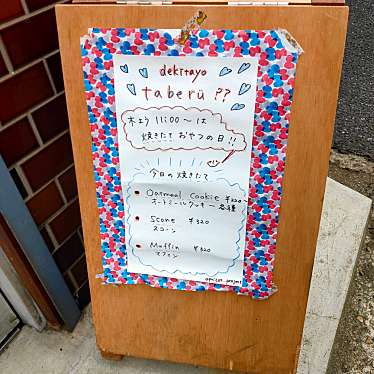 dekitayo
taberu??
木よう 11:00〜は
焼きたておやつの日!!
今日の焼きたて
Oatmeal Cookie ¥320〜
オートミールクッキー 各種
Scone ¥320
スコーン
Muffin ¥320
マフィン